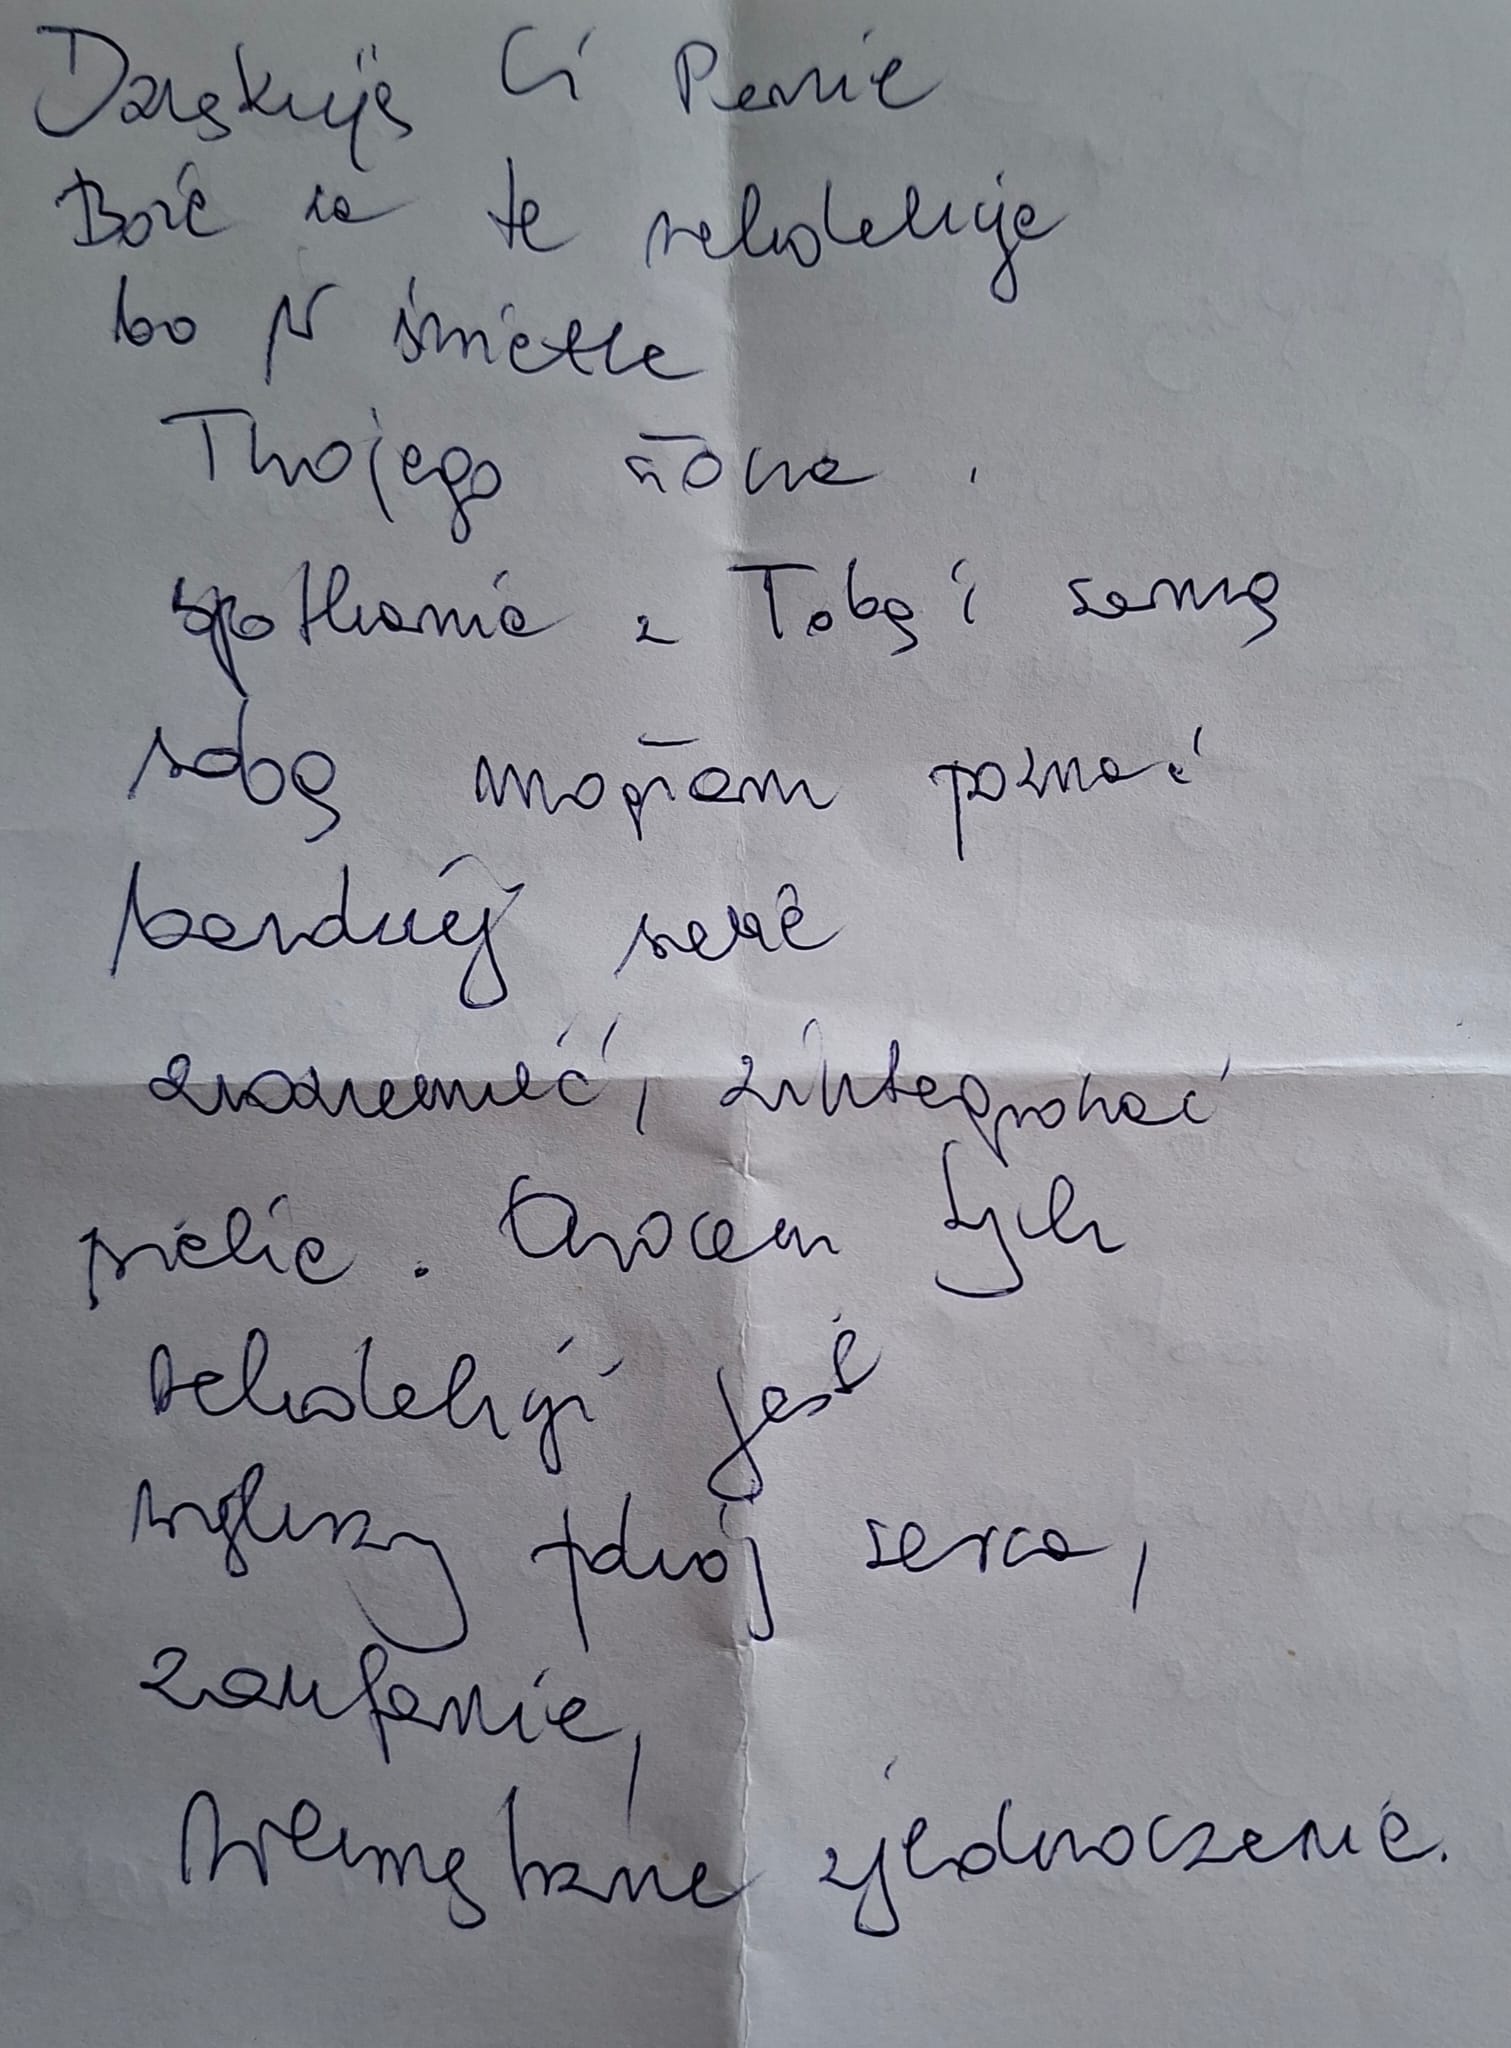 Dziękuję Ci Panie
Boże za te rekolekcje
bo w świetle
Twojego słowa,
spotkanie z Tobą i samą
sobą mogłam poznać
bardziej siebie
zrozumieć, zintegrować
siebie. Owocem tych
rekolekcji jest
większy pokój serca,
zaufanie,
wewnętrzne zjednoczenie.